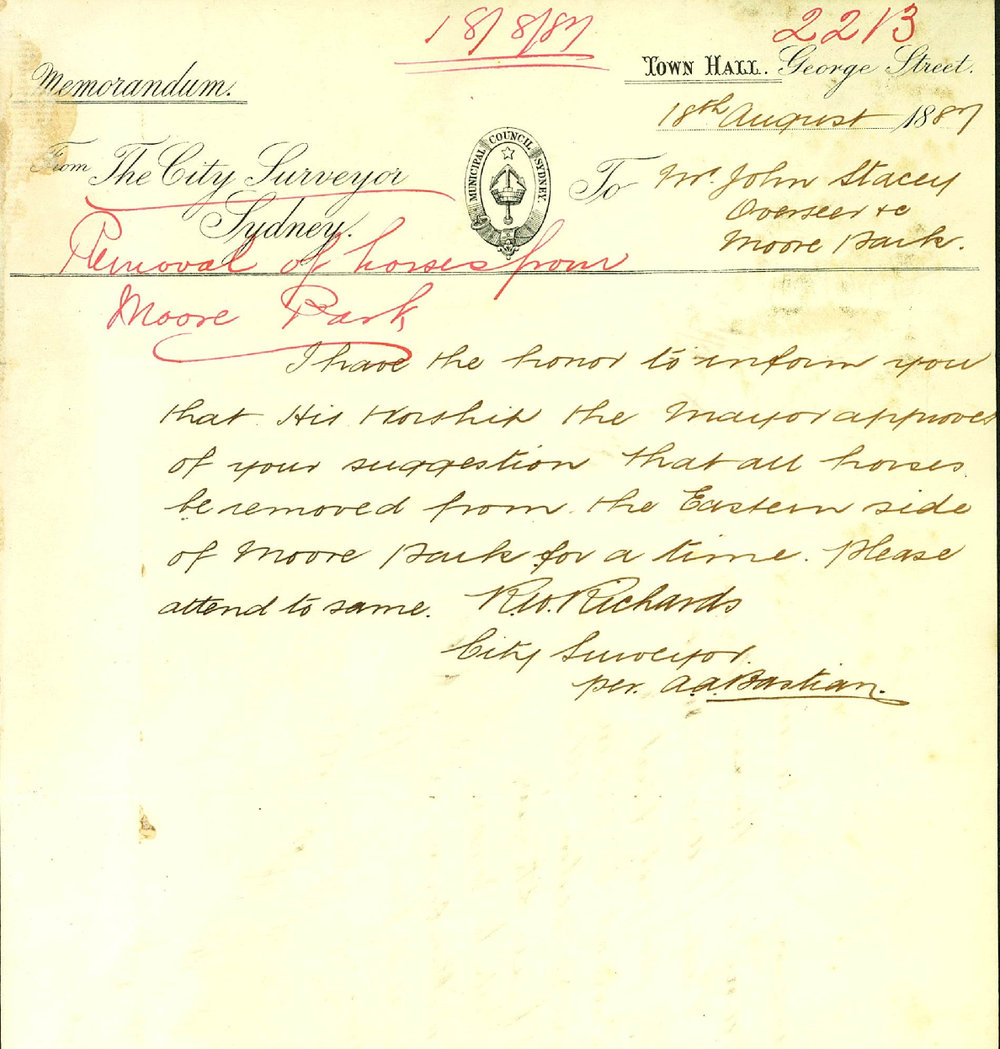 18/8/87
2213
Memorandum.
Town Hall. George Street.
18th August 1887
From The City Surveyor
Sydney.
MUNICIPAL COUNCIL SYDNEY
To Mr. John Stacey
Overseer &c
Moore Park.
Removal of horses from
Moore Park
I have the honor to inform you
that His Worship the Mayor approves
of your suggestion that all horses
be removed from the Eastern side
of Moore Park for a time. Please
attend to same. R.W. Richards
City Surveyor.
per. A.A. Bastian.